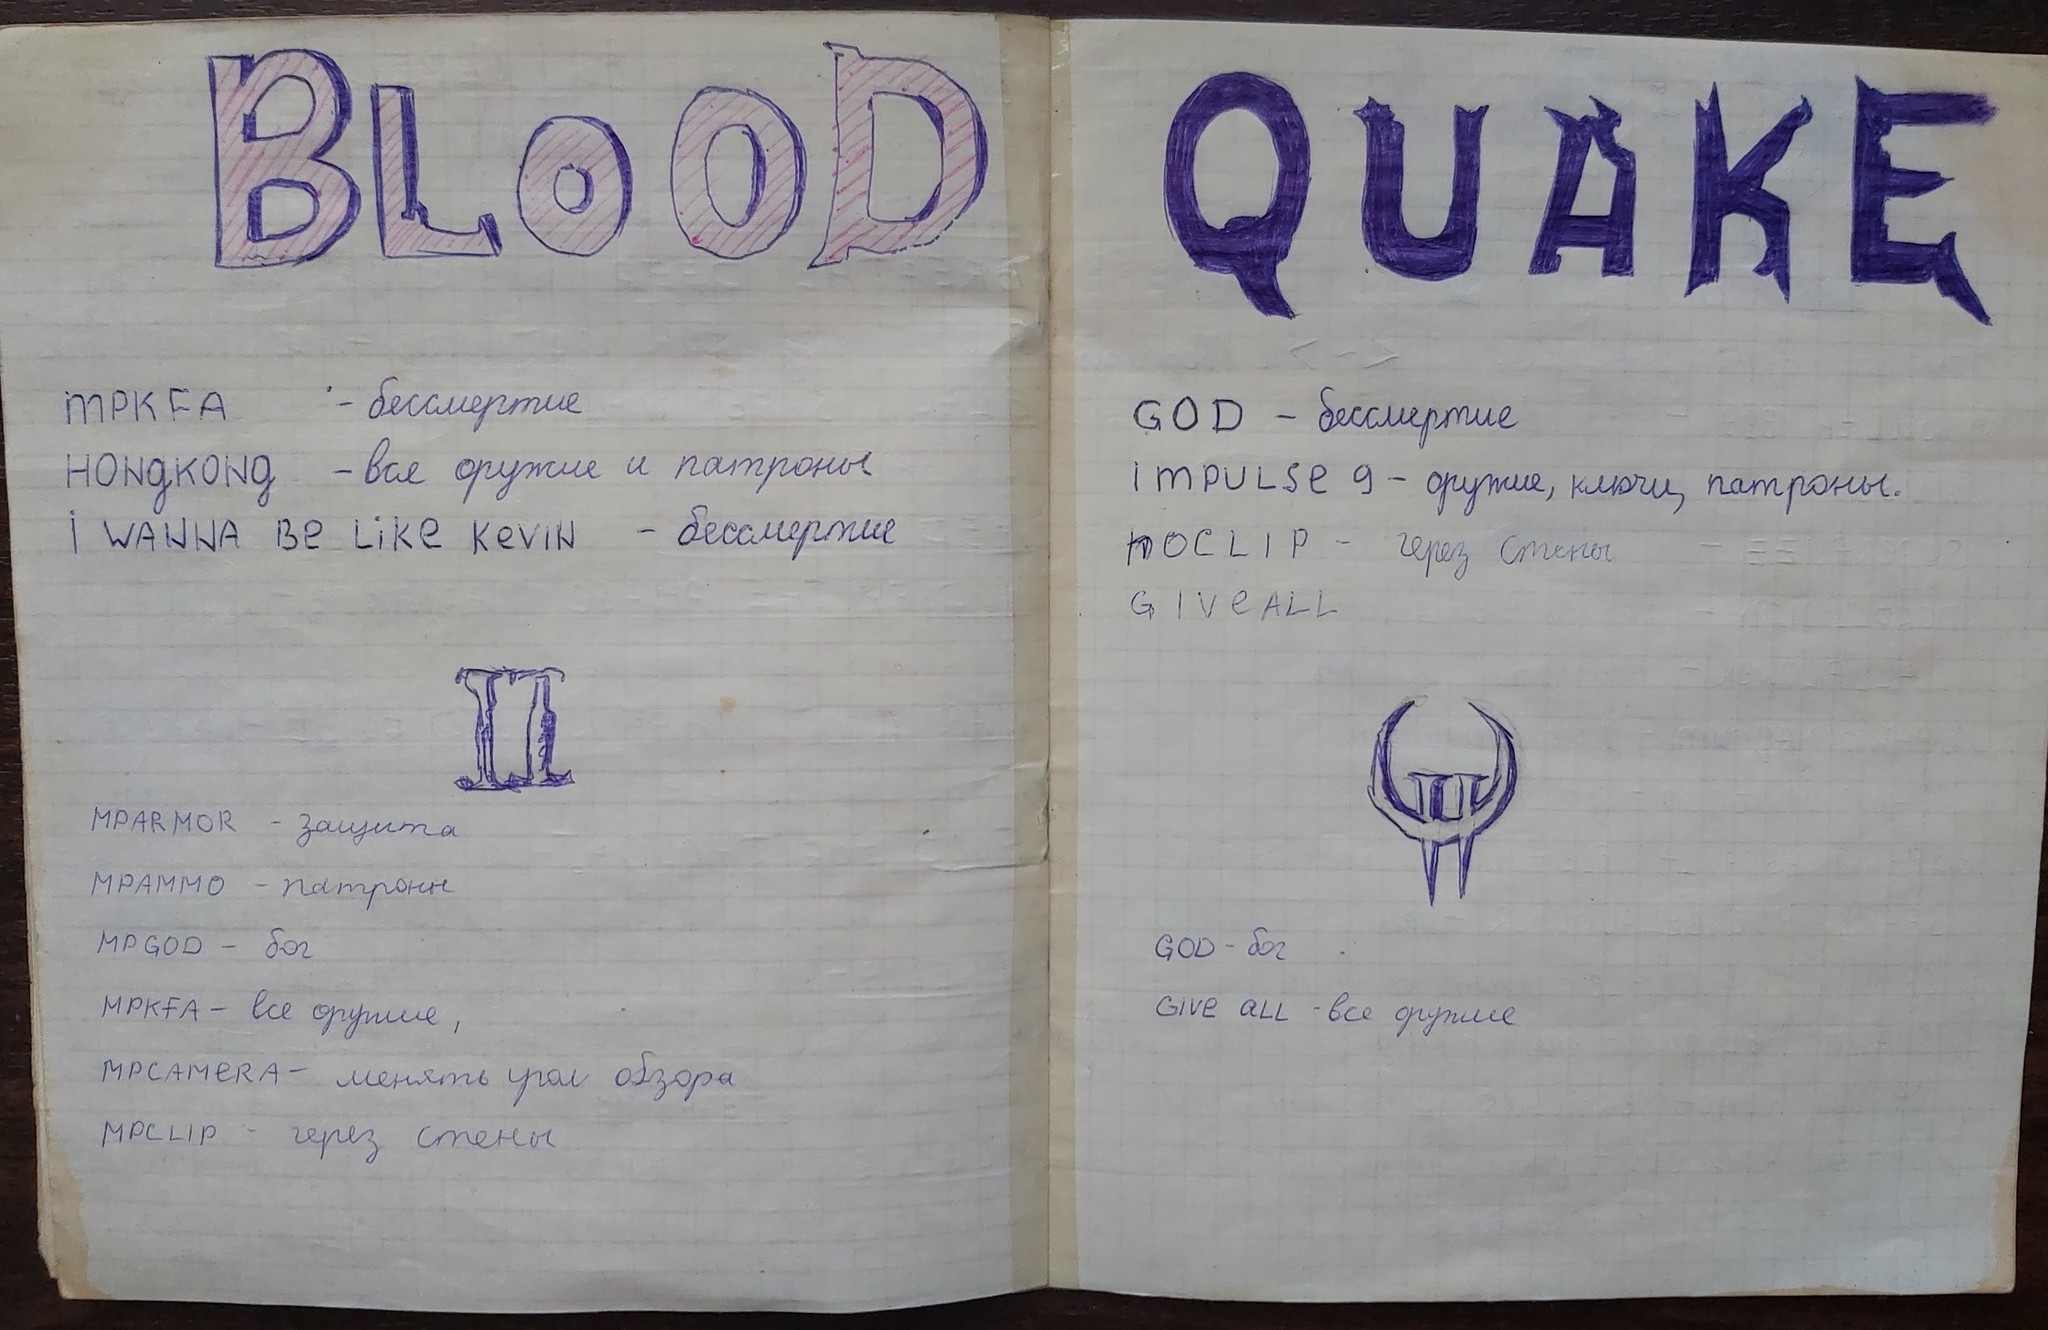 BLOOD
MPKFA - бессмертие
HONGKONG - все оружие и патроны
I WANNA BE LIKE KEVIN - бессмертие
II
MPARMOR - защита
MPAMMO - патроны
MPGOD - бог
MPKFA - все оружие,
MPCAMERA - менять угол обзора
MPCLIP - через стены
QUAKE
GOD - бессмертие
IMPULSE 9 - оружие, ключи, патроны.
NOCLIP - через стены
GIVEALL
II
GOD - бог
GIVE ALL - все оружие